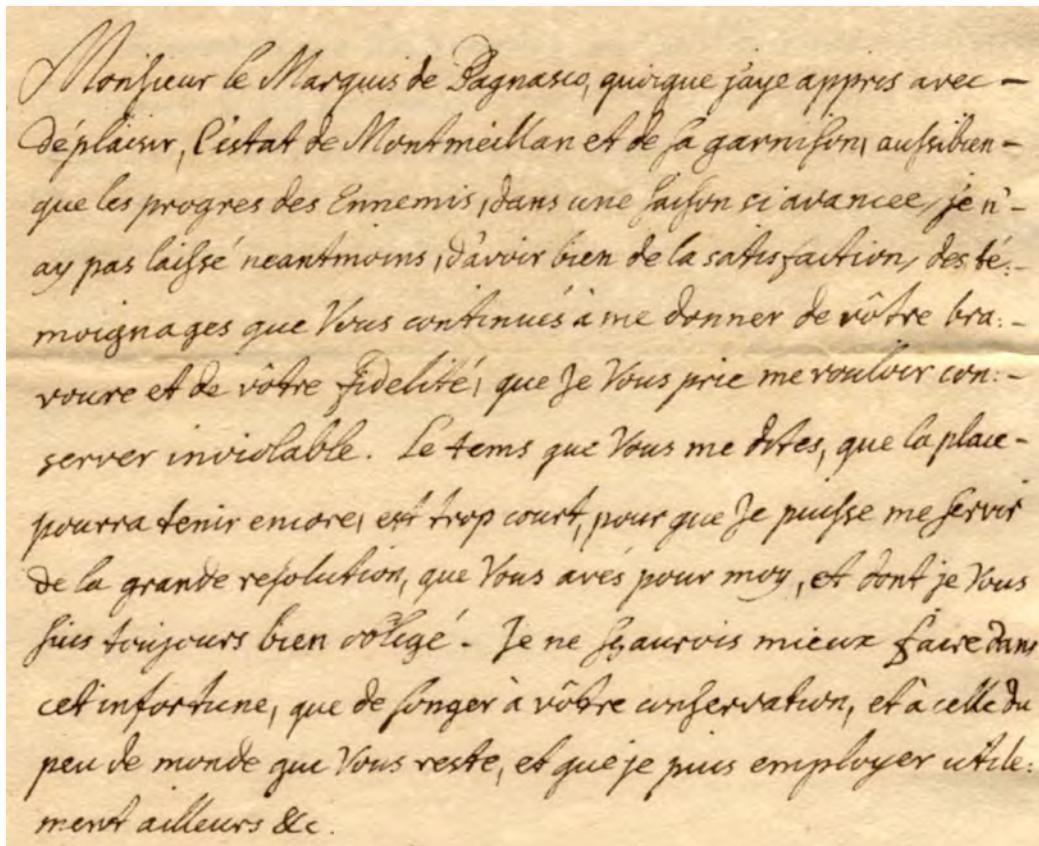 Monsieur le Marquis de Bagnasco, quoique j'aye appris avec -
déplaisir, l'estat de Montmeillan et de sa garnison, aussibien -
que les progres des Ennemis, dans une saison si avancee, je n'-
ay pas laissé neantmoins, d'avoir bien de la satisfaction, des té:-
moignages que Vous continués à me donner de vôtre bra:-
voure et de vôtre fidelité, que Je Vous prie me vouloir con:-
server inviolable. Le tems que Vous me dites, que la place -
pourra tenir encore, est trop court, pour que Je puisse me servir
de la grande resolution, que Vous avés pour moy, et dont je Vous
suis toujours bien obligé - Je ne sçaurois mieux faire dans
cet infortune, que de songer à vôtre conservation, et à celle du
peu de monde que Vous reste, et que je puis employer utile:
ment ailleurs &c.